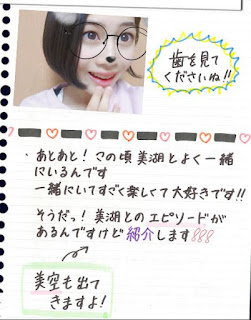 歯を見て
くださいね!!
・あとあと!この頃美湖とよく一緒
にいるんです
一緒にいてすごく楽しくて大好きです!!
そうだっ!美湖とのエピソードが
あるんですけど紹介します
美空も出て
きますよ!